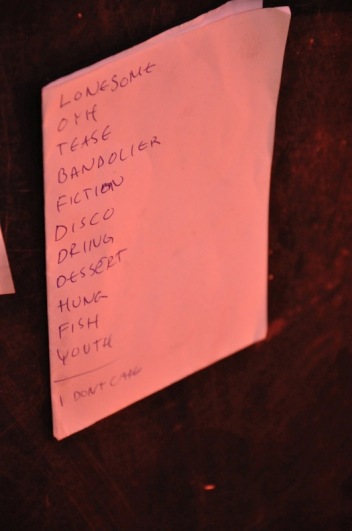 LONESOME
OYH
TEASE
BANDOLIER
FICTION
DISCO
DRIING
DESSERT
HUNG
FISH
YOUTH
I DONT CARE